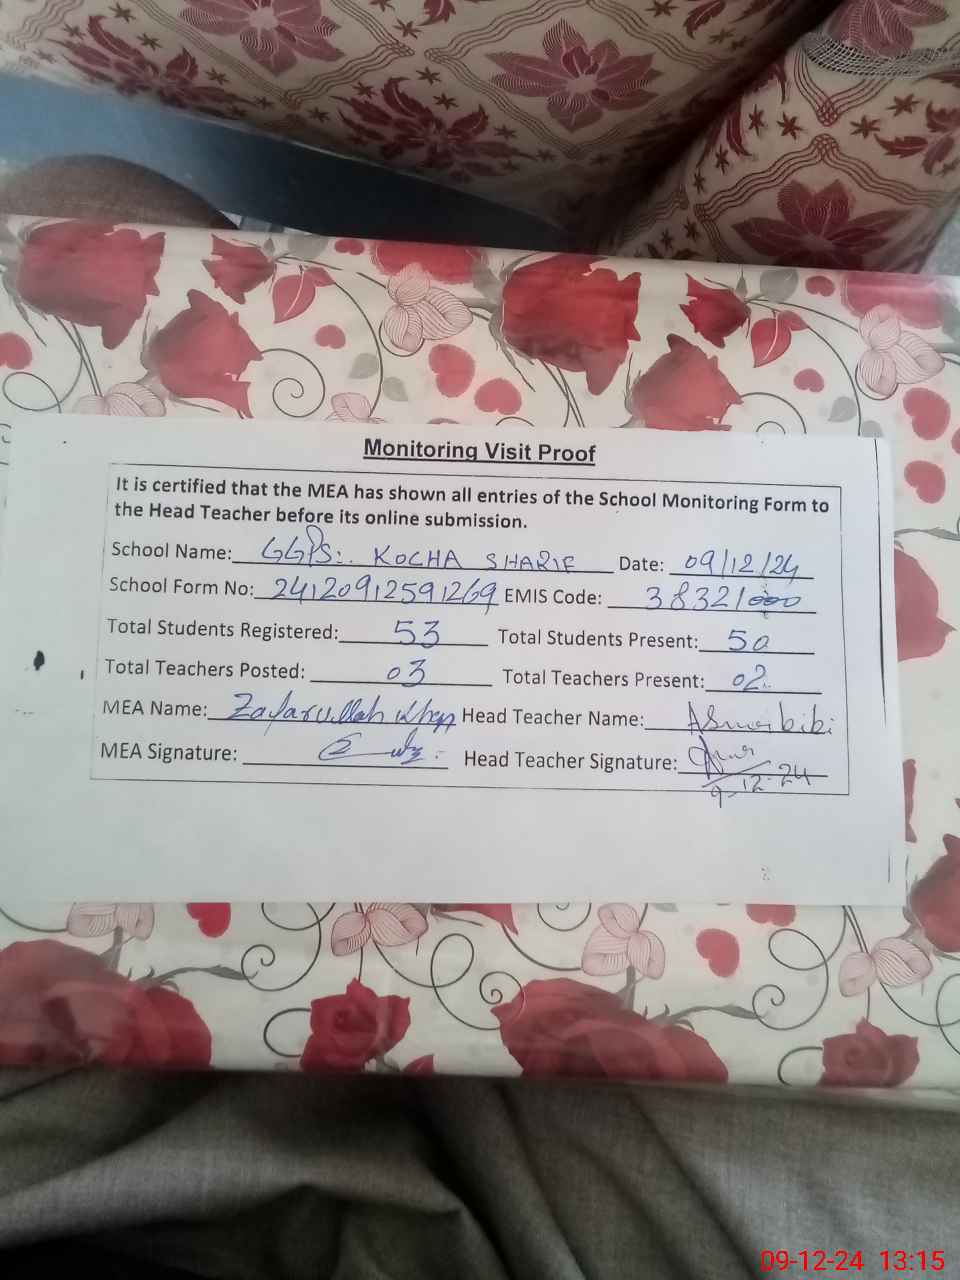 Monitoring Visit Proof
It is certified that the MEA has shown all entries of the School Monitoring Form to
the Head Teacher before its online submission.
School Name: GGPS:. KOCHA SHARIF Date: 09/12/24
School Form No: 24120912591269 EMIS Code: 38321000
Total Students Registered: 53 Total Students Present: 50
Total Teachers Posted: 03 Total Teachers Present: 02
MEA Name: Zafarullah Khan Head Teacher Name: Asmabibi
MEA Signature: Head Teacher Signature:
9-12-24
09-12-24 13:15